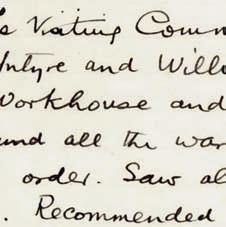 's Visiting Comm
Intyre and Willi
Workhouse and
und all the war
order. Saw al
. Recommended